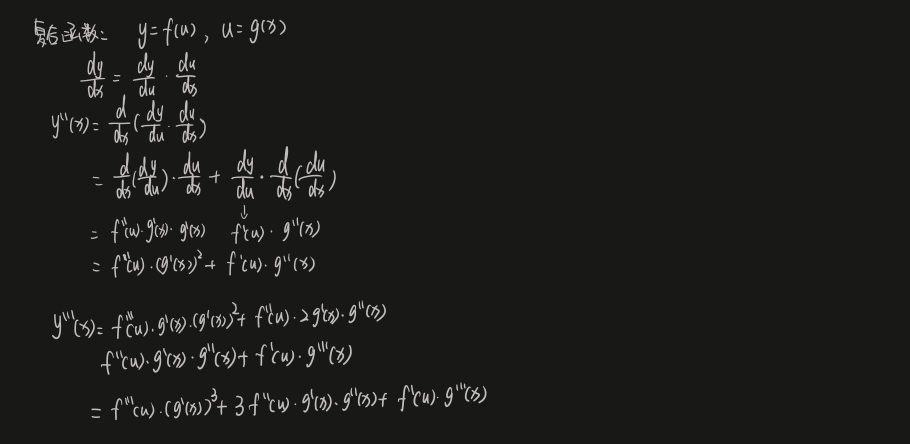 复合函数: y=f(u), u=g(x)
dy/dx = dy/du · du/dx
y''(x)= d/dx(dy/du · du/dx)
= d/dx(dy/du)·du/dx + dy/du · d/dx(du/dx)
↓
= f''(u)·g'(x)·g'(x) f'(u)·g''(x)
= f''(u)·(g'(x))²+ f'(u)·g''(x)
y'''(x)= f'''(u)·g'(x)·(g'(x))²+ f''(u)·2g'(x)·g''(x)
f''(u)·g'(x)·g''(x)+ f'(u)·g'''(x)
= f'''(u)·(g'(x))³+ 3f''(u)·g'(x)·g''(x)+ f'(u)·g'''(x)